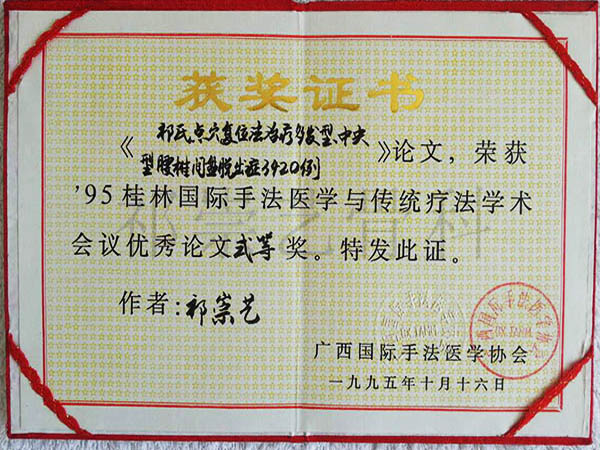 获奖证书
《祁氏点穴复位法治疗多发型、中央
型腰椎间盘脱出症3920例》论文，荣获
'95桂林国际手法医学与传统疗法学术
会议优秀论文弍等奖。特发此证。
作者：祁崇艺
广西国际手法医学协会
一九九五年十月十六日